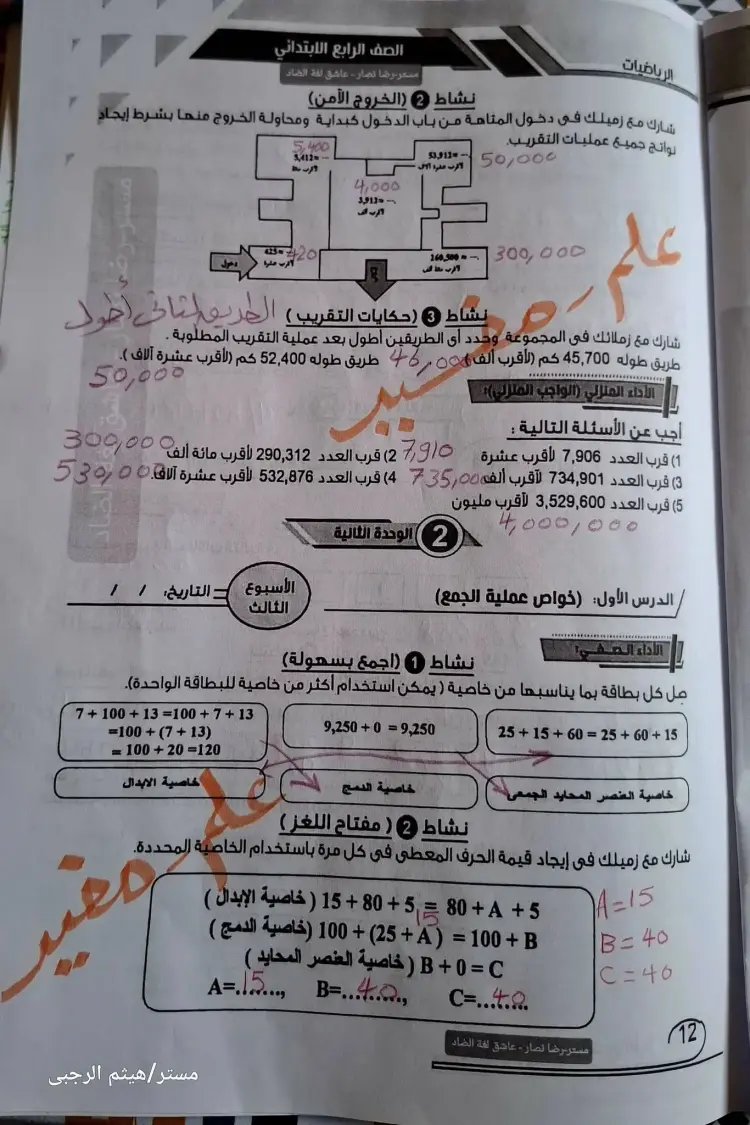 الرياضيات
الصف الرابع الابتدائي
مستر-رضا نصار - عاشق لغة الضاد
نشاط 2 (الخروج الآمن)
شارك مع زميلك فى دخول المتاهة من باب الدخول كبداية ومحاولة الخروج منها بشرط إيجاد
نواتج جميع عمليات التقريب.
5,400
5,412≈
لأقرب مائة
53,913≈
لأقرب عشرة آلاف
50,000
4,000
3,912≈
لأقرب ألف
دخول
425≈ 420
لأقرب عشرة
260,500≈
لأقرب مائة ألف
300,000
نشاط 3 (حكايات التقريب) الطريق الثانى أطول
شارك مع زملائك فى المجموعة وحدد أى الطريقين أطول بعد عملية التقريب المطلوبة .
طريق طوله 45,700 كم (لأقرب ألف) 46,000 طريق طوله 52,400 كم (لأقرب عشرة آلاف).
50,000
الأداء المنزلي (الواجب المنزلي):
أجب عن الأسئلة التالية :
1) قرب العدد 7,906 لأقرب عشرة 7,910 2) قرب العدد 290,312 لأقرب مائة ألف 300,000
3) قرب العدد 734,901 لأقرب ألف 735,000 4) قرب العدد 532,876 لأقرب عشرة آلاف. 530,000
5) قرب العدد 3,529,600 لأقرب مليون
4,000,000
2 الوحدة الثانية
الدرس الأول: (خواص عملية الجمع)
الأسبوع الثالث
التاريخ: / /
الأداء الصفي:
نشاط 1 (اجمع بسهولة)
صل كل بطاقة بما يناسبها من خاصية ( يمكن استخدام أكثر من خاصية للبطاقة الواحدة).
25 + 15 + 60 = 25 + 60 + 15
9,250 + 0 = 9,250
7 + 100 + 13 =100 + 7 + 13
=100 + (7 + 13)
= 100 + 20 =120
خاصية العنصر المحايد الجمعى
خاصية الدمج
خاصية الابدال
نشاط 2 ( مفتاح اللغز )
شارك مع زميلك فى إيجاد قيمة الحرف المعطى فى كل مرة باستخدام الخاصية المحددة.
15 + 80 + 5 = 80 + A + 5 ( خاصية الإبدال )
15
100 + (25 + A) = 100 + B ( خاصية الدمج )
B + 0 = C ( خاصية العنصر المحايد )
A=.15...., B=..40..., C=..40..
A=15
B=40
C=40
علم ـ مفيد
علم ـ مفيد
مستر-رضا نصار - عاشق لغة الضاد
12
مستر/هيثم الرجبى